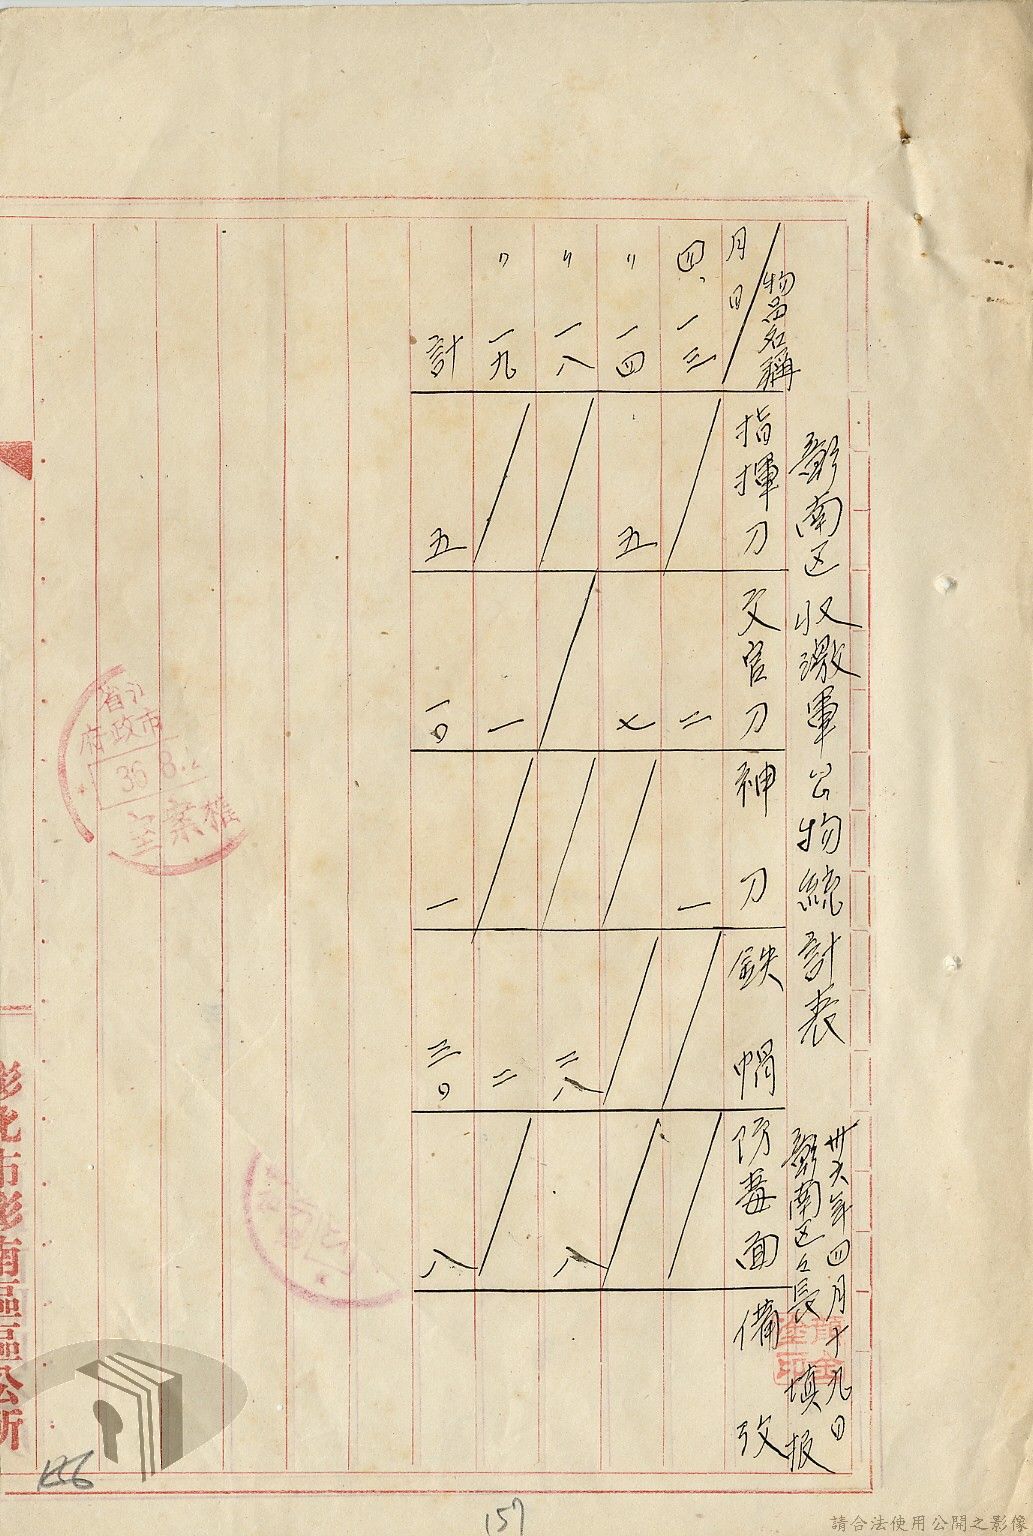 彰南区收繳軍公物統計表
卅六年四月十九日
彰南区々長 填报
物品名稱
月日
指揮刀
文官刀
神刀
鉄帽
防毒面
備攷
四、一三 / 二 一 / /
〃 一四 五 七 / / /
〃 一八 / / / 二八 八
〃 一九 / 一 / 二 /
計 五 一〇 一 三〇 八
彰化市彰南區區公所
省
市政府
36 8.
檔案室
156
157
請合法使用公開之影像